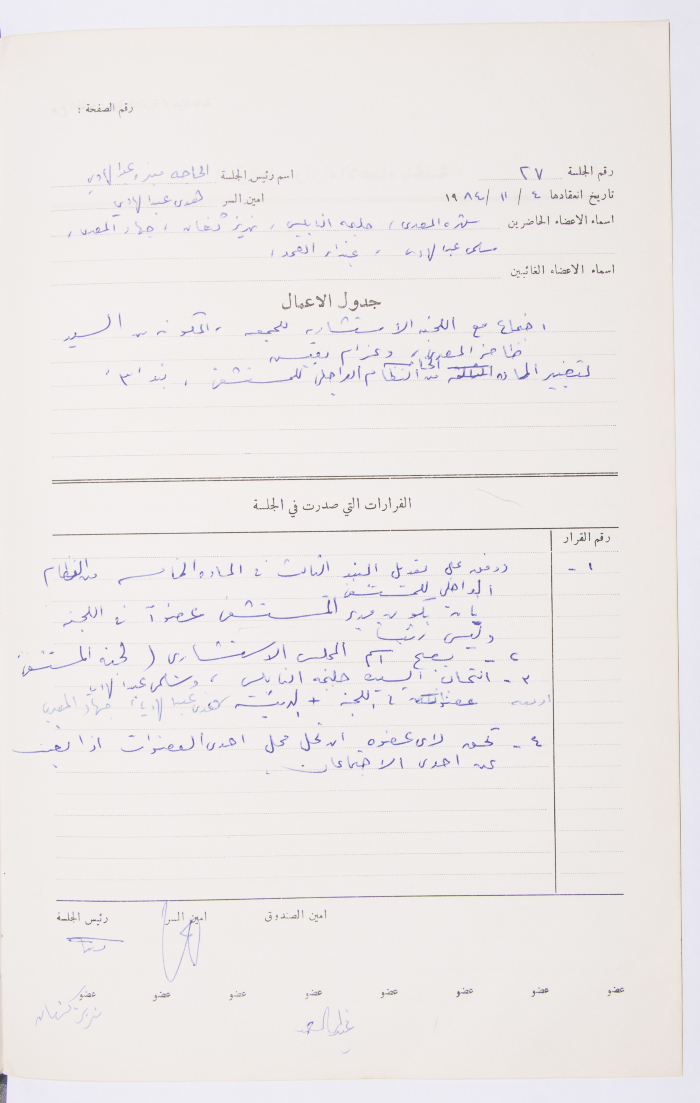 رقم الصفحة :
رقم الجلسة ٢٧ اسم رئيس الجلسة الحاجه عبد الهادي
تاريخ انعقادها ٤ / ١١ / ١٩٨٤ امين السر هدى عبد الهادي
اسماء الاعضاء الحاضرين المصري ، حليمه النابلسي ، كنعان ، جهاد المصري ،
سلمى عبد الهادي ،
اسماء الاعضاء الغائبين
جدول الاعمال
اجتماع مع اللجنه الاستشاريه للجمعيه والمكونه من السيد
المصري ، وعزام
لتغيير الماده من النظام الداخلي للمستشفى ، بند ٣
القرارات التي صدرت في الجلسة
رقم القرار
١ - ووفق على تعديل البند الثالث في الماده الخامسه من النظام
الداخلي للمستشفى
بان يكون مدير المستشفى عضواً في اللجنه
وليس رئيساً
٢ - يصبح اسم المجلس الاستشاري ( لجنه المستشفى
٣ - انتخاب السيده حليمه النابلسي ، وسلمى عبد الهادي
اربعه عضوات في اللجنه + هدى عبد الهادي جهاد المصري
٤ - يحق لاي عضوه ان تحل محل احدى العضوات اذا
عن احدى الاجتماعات
رئيس الجلسة امين السر امين الصندوق
عضو عضو عضو عضو عضو عضو عضو عضو
كنعان